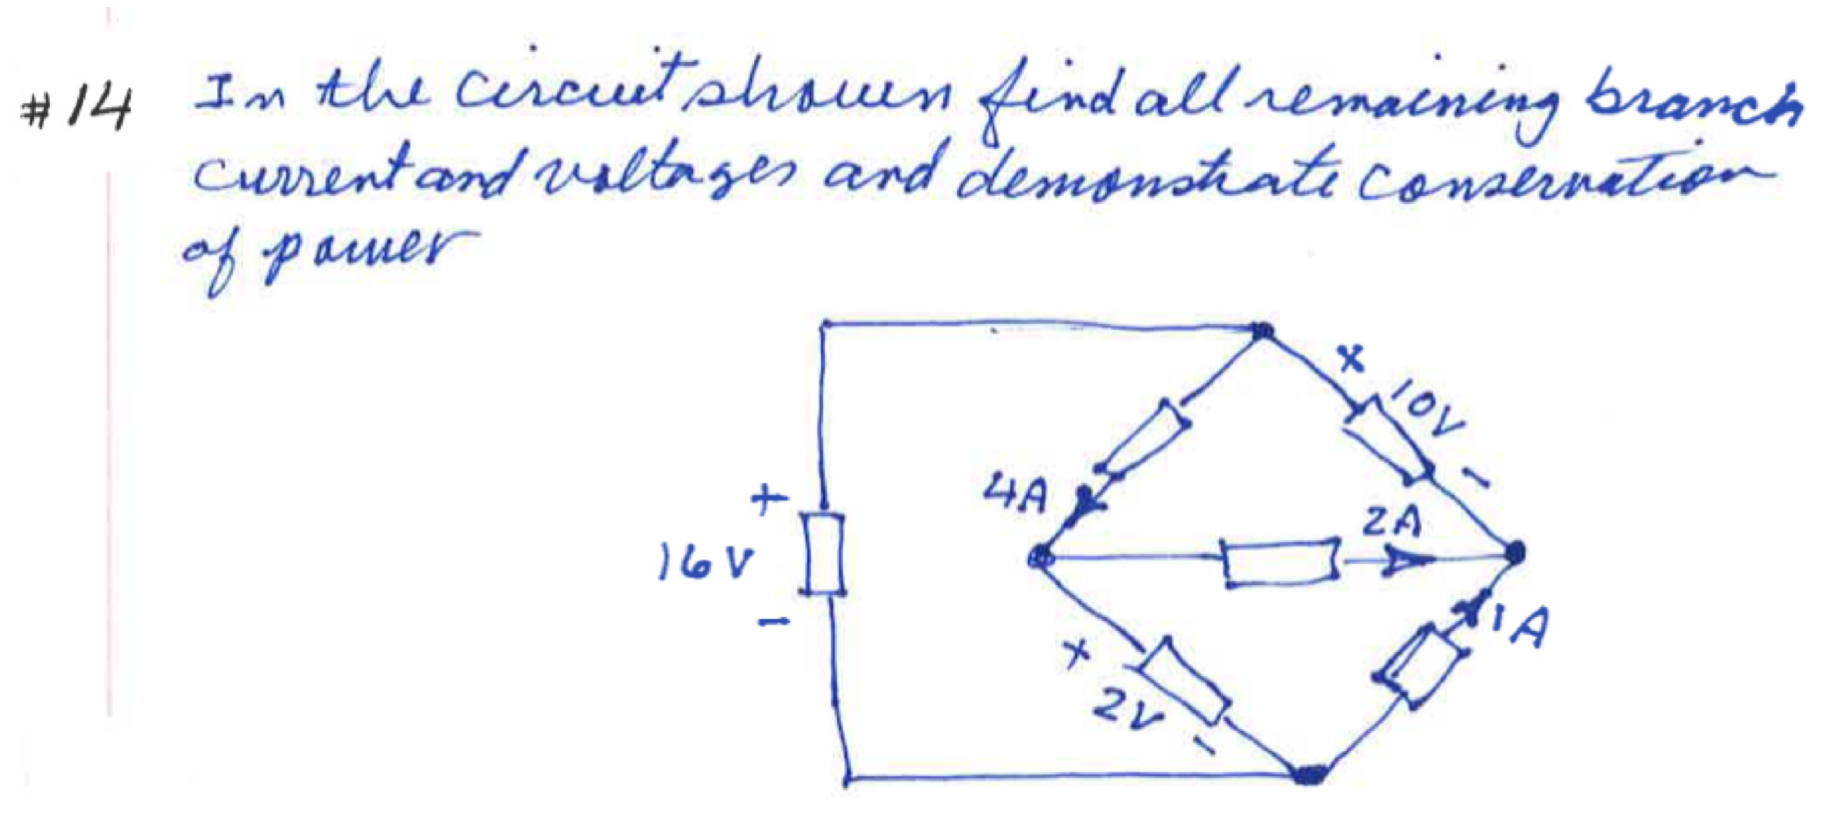 #14 In the circuit shown find all remaining branch
current and voltages and demonstrate conservation
of power
+ 10V -
4A
2A
+
16V
-
1A
+ 2V -